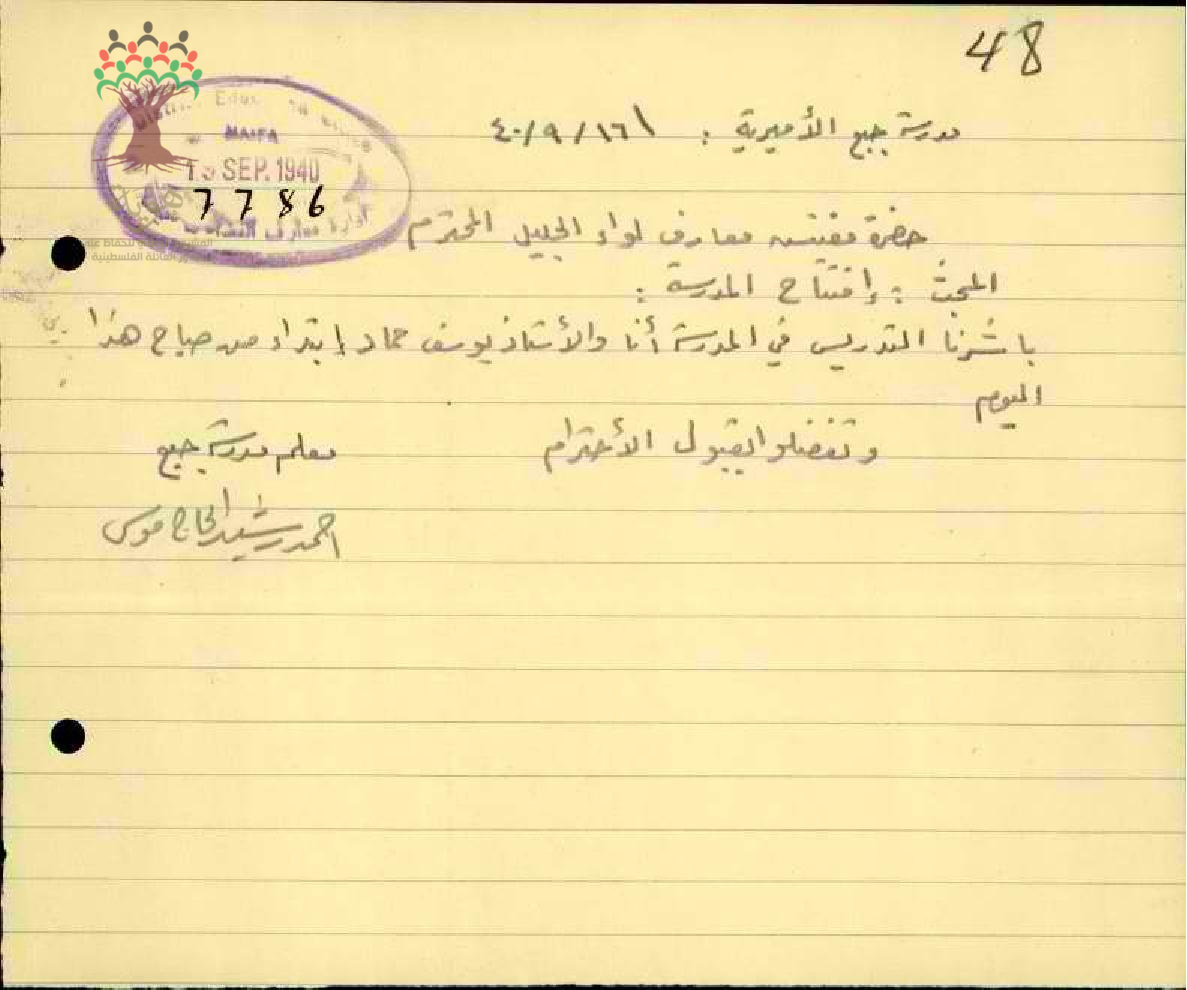 48
مدرسة جبع الأميرية : ١٦/٩/٤٠
HAIFA
SEP. 1940
7786
حضرة مفتش معارف لواء الجليل المحترم
المبحث : إفتتاح المدرسة :
باشرنا التدريس في المدرسة أنا والأستاذ يوسف حماد إبتداء من صباح هذا
اليوم
وتفضلوا بقبول الأحترام
معلم مدرسة جبع
احمد رشيد الحاج موسى